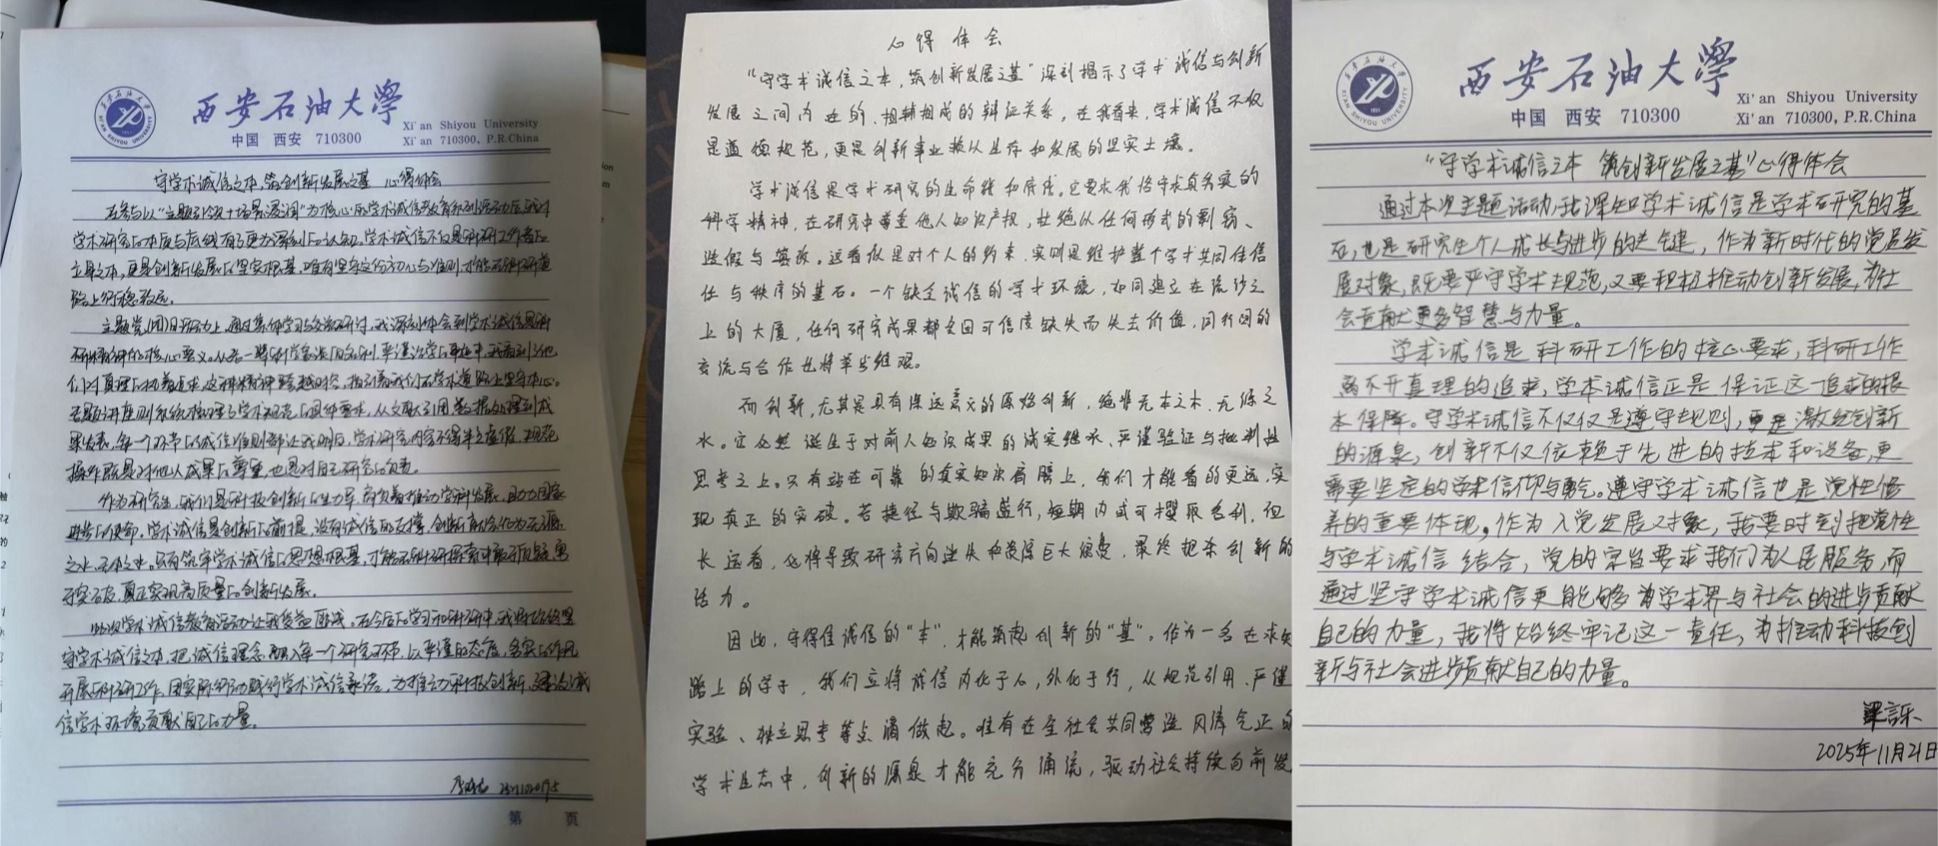 西安石油大学
中国 西安 710300
Xi'an Shiyou University
Xi'an 710300, P.R.China
守学术诚信之本,筑创新发展之基 心得体会
在参与以“主题引领+场景浸润”为核心的学术诚信教育系列活动后,我对
学术研究的本质与底线有了更为深刻的认知。学术诚信不仅是科研工作者的
立身之本,更是创新发展的坚实根基,唯有坚守这份初心与准则,才能在科研道
路上行稳致远。
主题党(团)日活动上,通过集体学习与交流研讨,我深刻体会到学术诚信是科
研精神的核心要义。从老一辈科学家淡泊名利、严谨治学的事迹中,我看到了他
们对真理的执着追求,这种精神跨越时空,指引着我们在学术道路上坚守本心。
专题讲座则系统梳理了学术规范的具体要求,从文献引用、数据处理到成
果发表,每一个环节的诚信准则都让我明白,学术研究内容不得半点虚假,规范
操作既是对他人成果的尊重,也是对自己研究的负责。
作为研究生,我们是科技创新的生力军,肩负着推动学科发展、助力国家
进步的使命。学术诚信是创新的前提,没有诚信的支撑,创新就会化为无源
之水、无本之木。只有筑牢学术诚信的思想根基,才能在科研探索中敢于质疑、勇
于突破,真正实现高质量的创新发展。
此次学术诚信教育活动让我受益匪浅。在今后的学习和科研中,我将始终坚
守学术诚信之本,把诚信理念融入每一个研究环节,以严谨的态度、务实的作风
开展科研工作,用实际行动践行学术诚信承诺,为推动科技创新、建设诚
信学术环境贡献自己的力量。
第 页
心得体会
“守学术诚信之本,筑创新发展之基”深刻揭示了学术诚信与创新
发展之间内在的、相辅相成的辩证关系。在我看来,学术诚信不仅
是道德规范,更是创新事业赖以生存和发展的坚实土壤。
学术诚信是学术研究的生命线和底线。它要求我恪守求真务实的
科学精神,在研究中尊重他人知识产权,杜绝以任何形式的剽窃、
造假与篡改。这看似是对个人的约束,实则是维护整个学术共同体信
任与秩序的基石。一个缺乏诚信的学术环境,如同建立在流沙之
上的大厦,任何研究成果都会因可信度缺失而失去价值,同行间的
交流与合作也将举步维艰。
而创新,尤其是具有深远意义的原始创新,绝非无本之木、无源之
水。它必然诞生于对前人知识成果的诚实继承、严谨验证与批判性
思考之上。只有站在可靠的真实知识肩膀上,我们才能看的更远,实
现真正的突破。若捷径与欺骗盛行,短期内或可攫取名利,但
长远看,必将导致研究方向迷失和资源巨大浪费,最终扼杀创新的
活力。
因此,守得住诚信的“本”,才能筑起创新的“基”。作为一名在求知
路上的学子,我们应将诚信内化于心,外化于行,从规范引用、严谨
实验、独立思考等点滴做起。唯有在全社会共同营造风清气正的
学术生态中,创新的源泉才能充分涌流,驱动社会持续向前发
西安石油大学
中国 西安 710300
Xi'an Shiyou University
Xi'an 710300, P.R.China
“守学术诚信之本 筑创新发展之基”心得体会
通过本次主题活动,我深知学术诚信是学术研究的基
石,也是研究生个人成长与进步的关键,作为新时代的党员发
展对象,既要严守学术规范,又要积极推动创新发展,为社
会贡献更多智慧与力量。
学术诚信是科研工作的核心要求,科研工作
离不开真理的追求,学术诚信正是保证这一追求的根
本保障。守学术诚信不仅仅是遵守规则,更是激发创新
的源泉,创新不仅依赖于先进的技术和设备,更
需要坚定的学术信仰与勇气。遵守学术诚信也是党性修
养的重要体现。作为入党发展对象,我要时刻把党性
与学术诚信结合,党的宗旨要求我们为人民服务,而
通过坚守学术诚信更能够为学术界与社会的进步贡献
自己的力量,我将始终牢记这一责任,为推动科技创
新与社会进步贡献自己的力量。
2025年11月21日